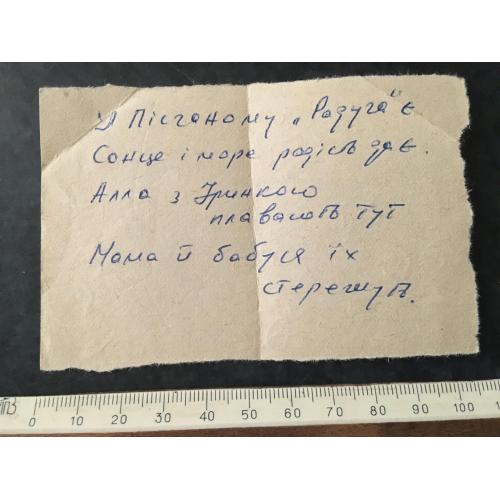 У Пісчаному „Радуга" є
Сонце і море радість дає.
Алла з Іринкою
плавають тут
Мама й бабуся їх
стережуть.
0 10 20 30 40 50 60 70 80 90 100